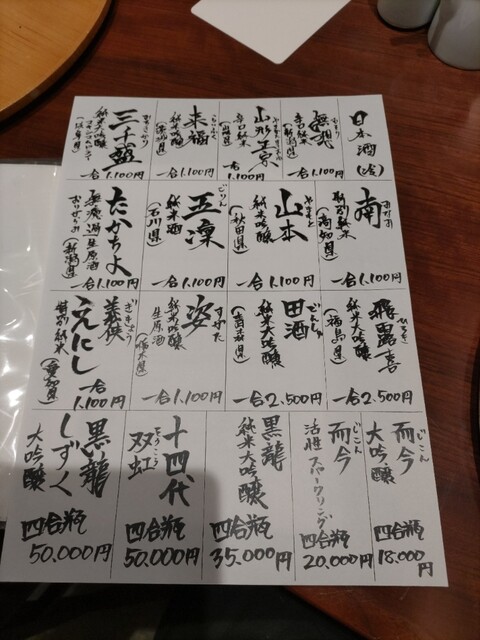 日本酒(冷)
無想
むそう
辛口純米
(新潟県)
一合1.100円
山形正宗
辛口純米
一合
1.100円
来福
らいふく
純米吟醸
(茨城県)
一合1.100円
三千盛
純米大吟醸
(岐阜県)
一合1.100円
南
みなみ
特別純米
(高知県)
一合1.100円
山本
やまもと
純米吟醸
(秋田県)
一合1.100円
五凜
ごりん
純米酒
(石川県)
一合1.100円
たかちよ
無濾過生原酒
おりがらみ
(新潟県)
一合1.100円
飛露喜
ひろき
純米大吟醸
(福島県)
一合2.500円
田酒
でんしゅ
純米大吟醸
(青森県)
一合2.500円
姿
すがた
純米吟醸
生原酒
(栃木県)
一合1.100円
義侠
ぎきょう
えにし
特別純米
(愛知県)
一合
1.100円
而今
じこん
大吟醸
四合瓶
18.000円
而今
じこん
活性スパークリング
四合瓶
20.000円
黒龍
純米大吟醸
四合瓶
35.000円
十四代
双虹
そうこう
四合瓶
50.000円
黒龍
しずく
大吟醸
四合瓶
50.000円